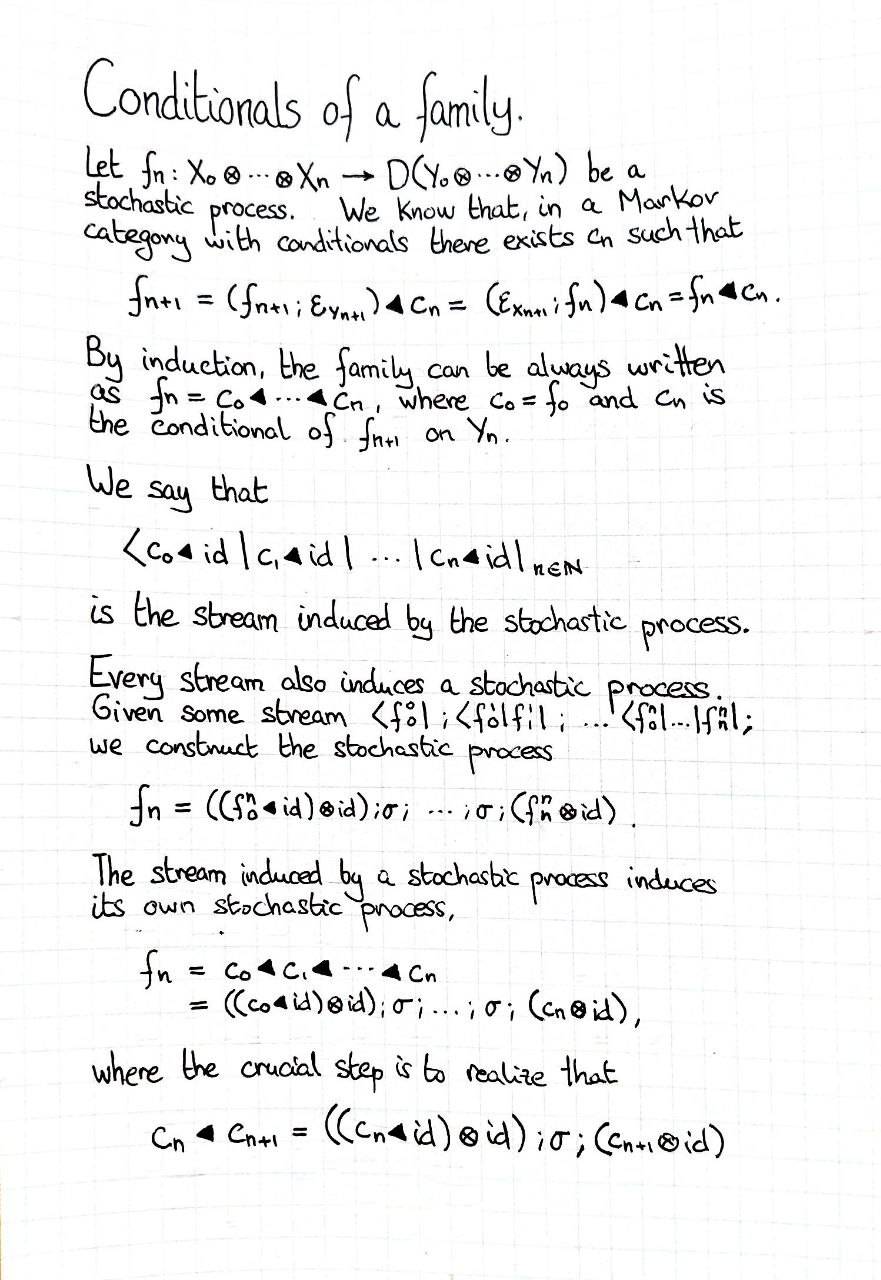 Conditionals of a family.
Let fn : X₀ ⊗ ⋯ ⊗ Xn → D(Y₀ ⊗ ⋯ ⊗ Yn) be a
stochastic process. We know that, in a Markov
category with conditionals there exists cn such that
fn+1 = (fn+1 ; εYn+1) ◀ cn = (εXn+1 ; fn) ◀ cn = fn ◀ cn .
By induction, the family can be always written
as fn = c₀ ◀ ⋯ ◀ cn , where c₀ = f₀ and cn is
the conditional of fn+1 on Yn .
We say that
⟨c₀ ◀ id | c₁ ◀ id | ⋯ | cn ◀ id | n∈ℕ
is the stream induced by the stochastic process.
Every stream also induces a stochastic process.
Given some stream ⟨f₀⁰| ; ⟨f₀¹|f₁¹| ; ⋯ ⟨f₀ⁿ|⋯|fₙⁿ| ;
we construct the stochastic process
fn = ((f₀ⁿ ◀ id) ⊗ id) ; σ ; ⋯ ; σ ; (fₙⁿ ⊗ id) .
The stream induced by a stochastic process induces
its own stochastic process,
fn = c₀ ◀ c₁ ◀ ⋯ ◀ cn
= ((c₀ ◀ id) ⊗ id) ; σ ; ... ; σ ; (cn ⊗ id) ,
where the crucial step is to realize that
cn ◀ cn+1 = ((cn ◀ id) ⊗ id) ; σ ; (cn+1 ⊗ id)